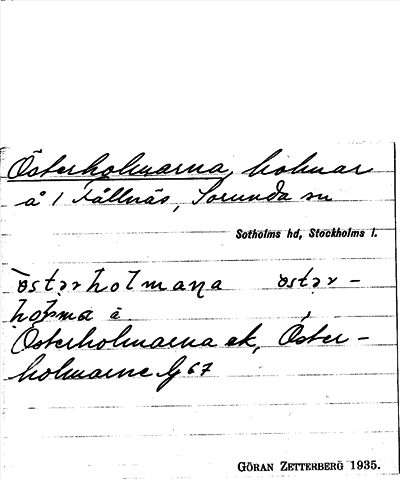 Österholmarna, holmar
å 1 Fållnäs, Sorunda sn
Sotholms hd, Stockholms l.
östərholmaɳa östər-
holma à
Österholmarna ek, Öster-
holmarne G 67
GÖRAN ZETTERBERG 1935.